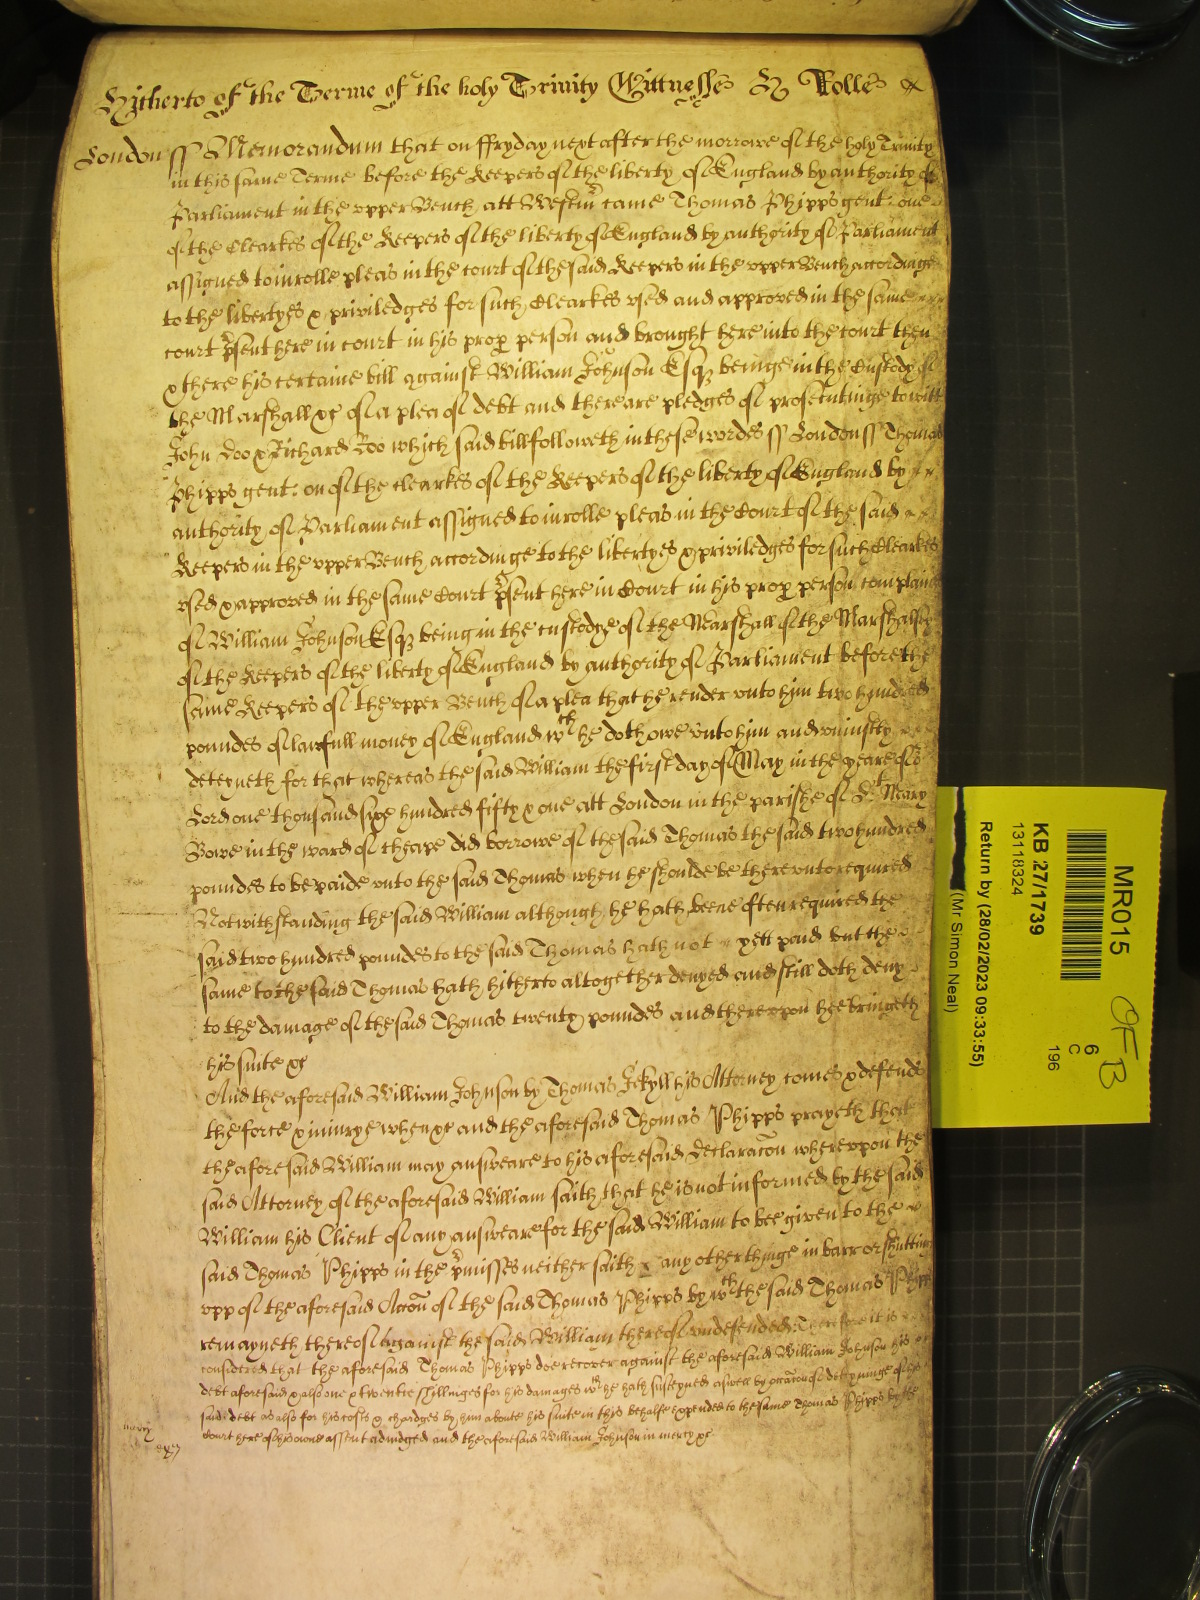 Hitherto of the Terme of the holy Trinity Wittnesse H Rolle &
London ss Memorandum that on ffryday next after the morrowe of the holy Trinity
in this same Terme before the Keepers of the liberty of England by authority of
Parliament in the upper Bench att Westm̃ came Thomas Phipps gent: one
of the Clearkes of the Keepers of the liberty of England by authority of Parliament
assigned to inrolle pleas in the court of the said Keepers in the upper Bench accordinge
to the libertyes & priviledges for such Clearkes used and approved in the same
court p̃sent here in court in his prop̱ person and brought here into the court then
& there his certaine bill against William Johnson Esqꝫ beinge in the Custody of
the Marshall &c of a plea of debt and there are pledges of prosecutinge to witt
John Doo & Richard Roo which said bill followeth in these wordes ss London ss Thomas
Phipps gent: on of the clearkes of the Keepers of the liberty of England by
authority of Parliament assigned to inrolle pleas in the Court of the said
Keepers in the upper Bench accordinge to the libertyes & priviledges for such Clearkes
used & approved in the same Court p̃sent here in Court in his prop̱ person complaines
of William Johnson Esqꝫ being in the custodye of the Marshall of the Marshalsey
of the Keepers of the liberty of England by authority of Parliament before the
same Keepers of the upper Bench of a plea that he render unto him two hundred
poundes of lawfull money of England wᵗʰ he doth owe unto him and uniustly
deteyneth for that whereas the said William the first day of May in the yeare of oʳ
Lord one thousand sixe hundred fifty & one att London in the parishe of Sᵗ Mary
Bowe in the ward of cheape did borrowe of the said Thomas the said two hundred
poundes to be paide unto the said Thomas when he shoulde be thereunto required
Notwithstanding the said William although he hath beene often required the
said two hundred poundes to the said Thomas hath not yett paid but the
same to the said Thomas hath hitherto altogether denyed and still doth deny
to the damage of the said Thomas twenty poundes and thereupon hee bringeth
his suite &c
And the aforesaid William Johnson by Thomas Jekyll his Attorney comes & defends
the force & iniurye when &c and the aforesaid Thomas Phipps prayeth that
the aforesaid William may answeare to his aforesaid declaracõn whereupon the
said Attorney of the aforesaid William saith that he is not informed by the said
William his Client of any answeare for the said William to bee given to the
said Thomas Phipps in the p̃misses neither saith any other thinge in barr or shutting
upp of the aforesaid Accõn of the said Thomas Phipps by wᵗʰ the said Thomas Phipps
remayneth thereof against the said William thereof undefended: Therefore it is
considered that the aforesaid Thomas Phipps doe recover against the aforesaid William Johnson his
debt aforesaid & alsoe twentie shillinges for his damages wᶜʰ he hath susteyned aswell by occac̃on of deteyninge of the
said debt as also for his costs & chardges by him aboute his suite in this behalfe expended to the same Thomas Phipps by the
Court here of his owne assent adiudged and the aforesaid William Johnson in mercy &c
mercy
MR015
KB 27/1739
13118324
Return by (28/02/2023 09:33:55)
(Mr Simon Neal)
6
C
196